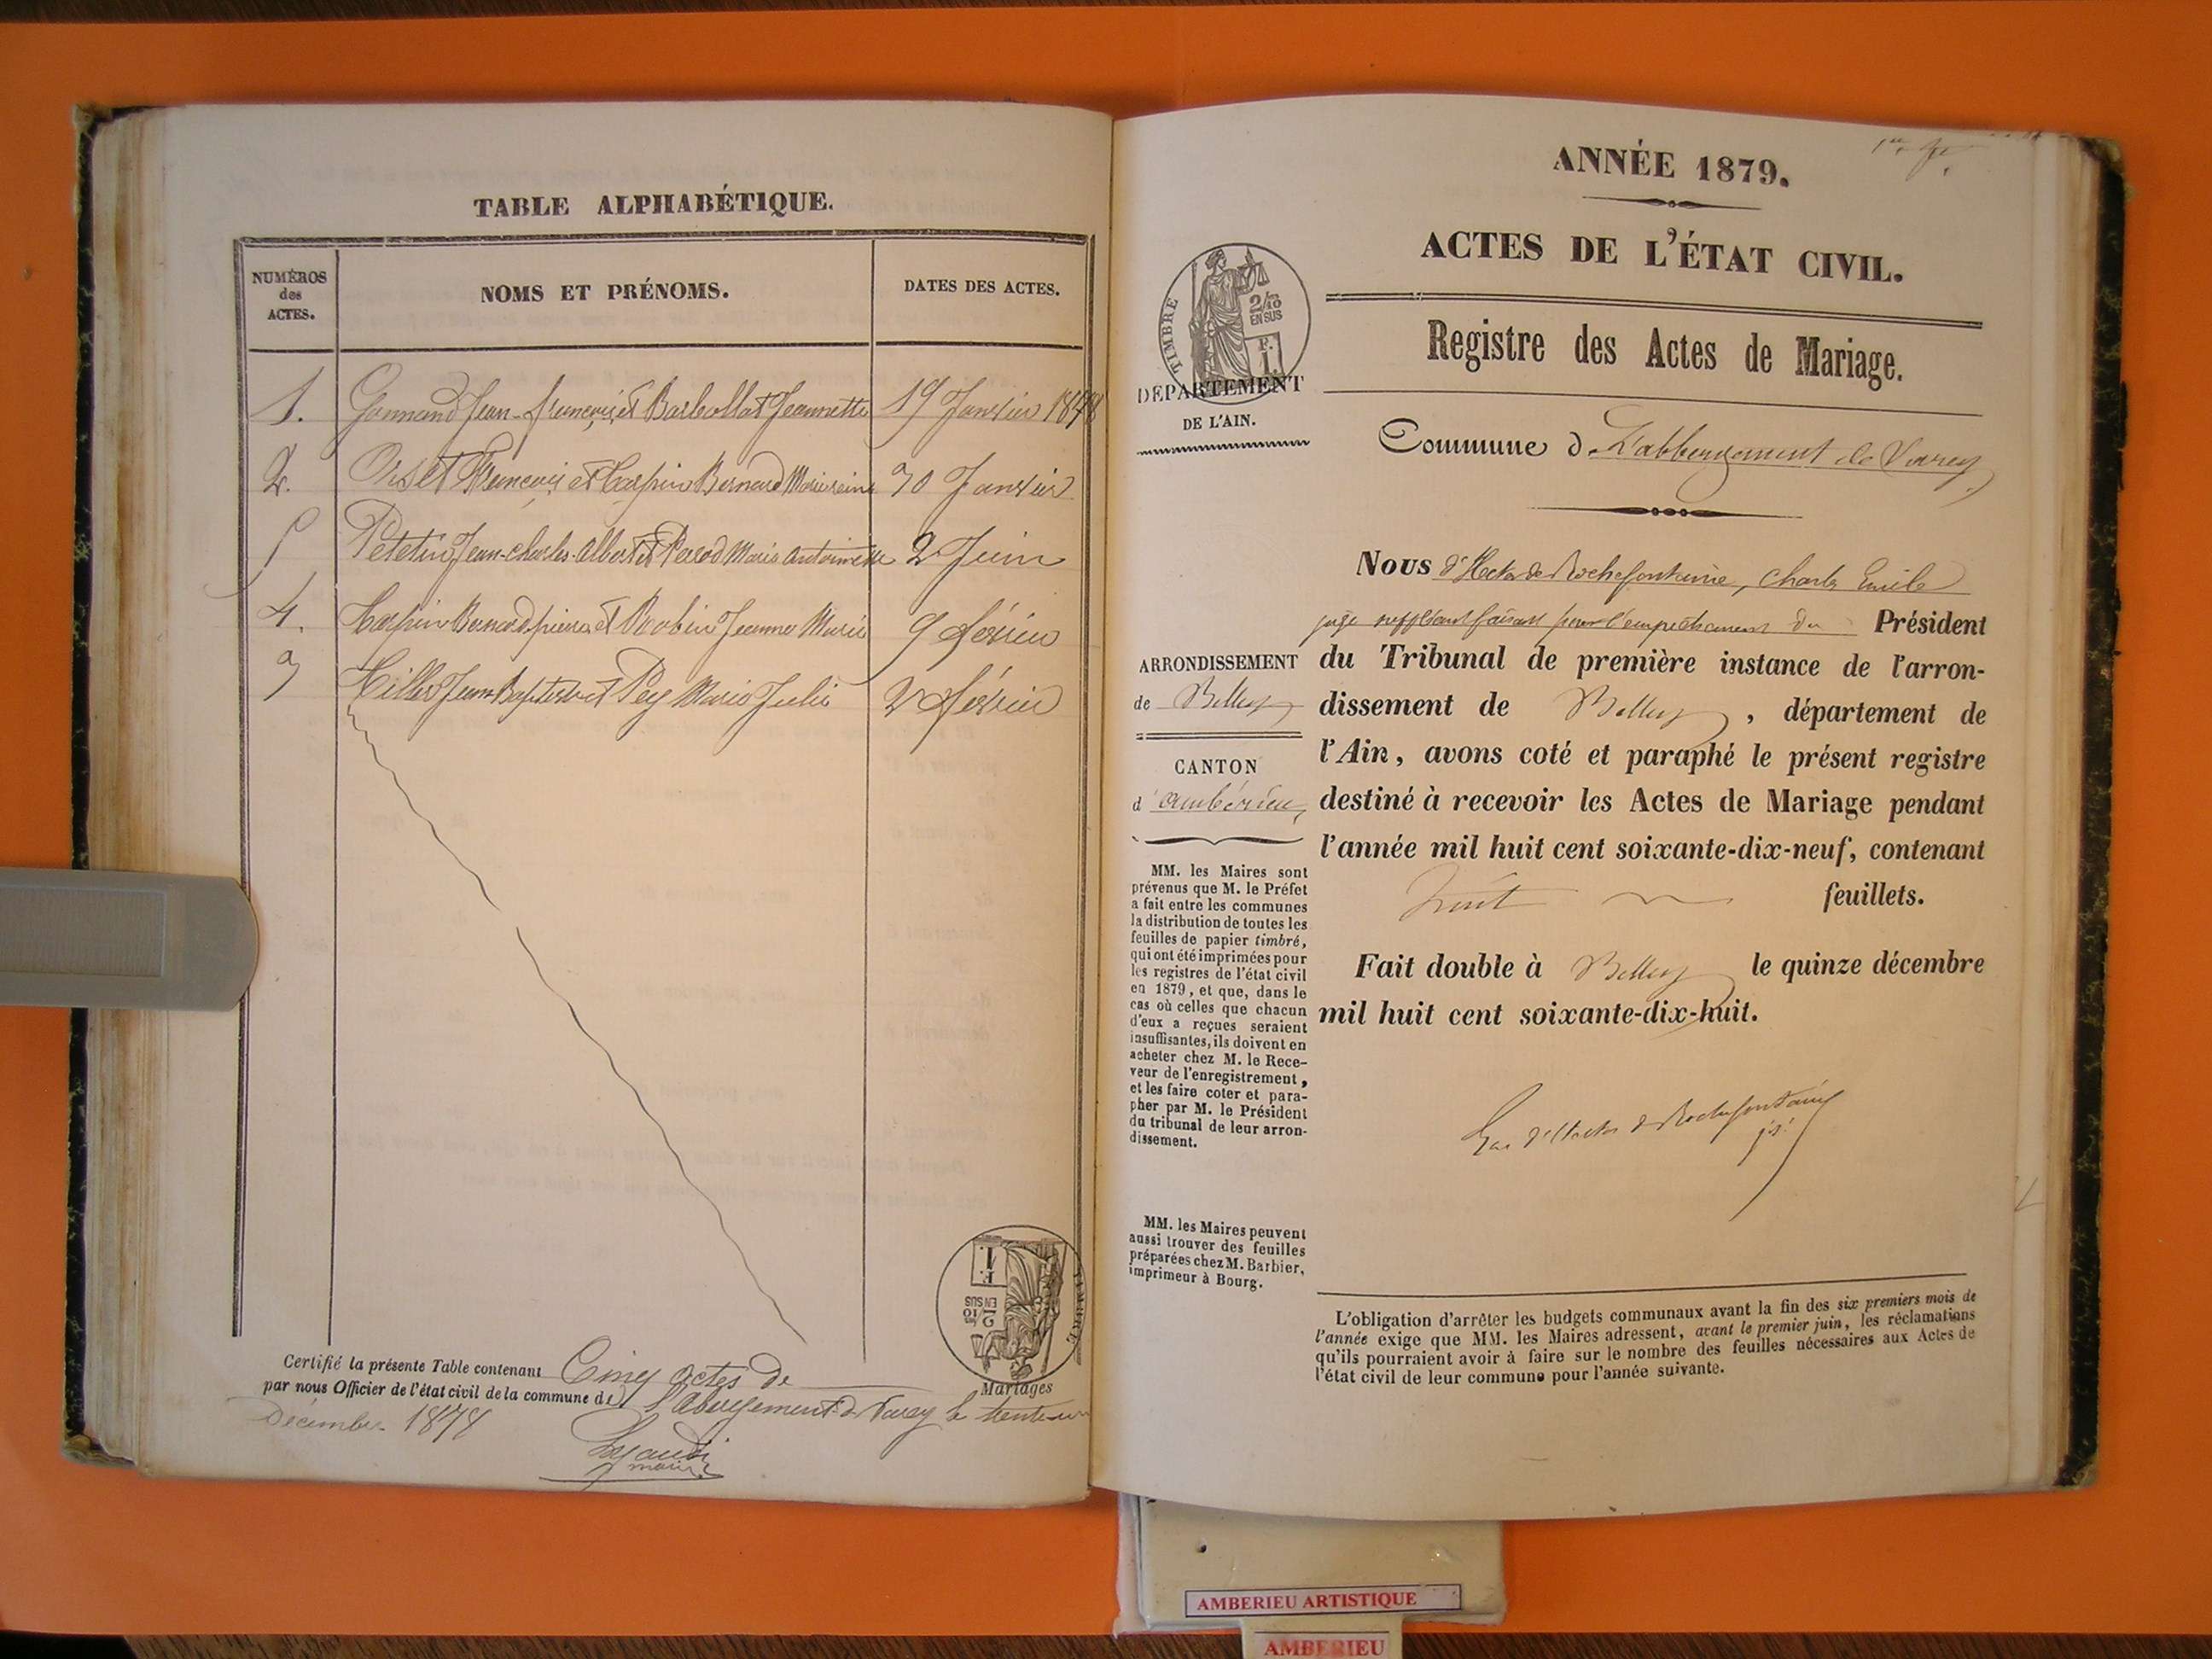 TABLE ALPHABÉTIQUE.
NUMÉROS
des
ACTES.
NOMS ET PRÉNOMS.
DATES DES ACTES.
1. Gonnand Jean-françois et Barbollat Jeannette 19 Janvier 1878
2. Orset François et Bernard 30 Janvier
5 Petetin Jean-charles-albert et Marie antoinette 2 Juin
4. Bernard pierre et Robin Jeanne Marie 9 février
3 Jean Baptiste et Pey Marie Julie 2 février
Certifié la présente Table contenant Cinq actes de
par nous Officier de l'état civil de la commune de l'Abergement-de Varey le trente-un
Décembre 1878
maire
TIMBRE
2/10
EN SUS
F.
1.
Mariages
1er
ANNÉE 1879.
ACTES DE L'ÉTAT CIVIL.
TIMBRE
2/10
EN SUS
F.
1.
DÉPARTEMENT
DE L'AIN.
Registre des Actes de Mariage.
Commune de L'abbergement de Varey
Nous d'Hector de Rochefontaine, Charles Emile
juge suppléant faisant pour l'empêchement du Président
du Tribunal de première instance de l'arron-
dissement de Belley, département de
l'Ain, avons coté et paraphé le présent registre
destiné à recevoir les Actes de Mariage pendant
l'année mil huit cent soixante-dix-neuf, contenant
huit feuillets.
Fait double à Belley le quinze décembre
mil huit cent soixante-dix-huit.
d'Hector de Rochefontaine
ARRONDISSEMENT
de Belley
CANTON
d'ambérieu
MM. les Maires sont
prévenus que M. le Préfet
a fait entre les communes
la distribution de toutes les
feuilles de papier timbré,
qui ont été imprimées pour
les registres de l'état civil
en 1879, et que, dans le
cas où celles que chacun
d'eux a reçues seraient
insuffisantes, ils doivent en
acheter chez M. le Rece-
veur de l'enregistrement,
et les faire coter et para-
pher par M. le Président
du tribunal de leur arron-
dissement.
MM. les Maires peuvent
aussi trouver des feuilles
préparées chez M. Barbier,
imprimeur à Bourg.
L'obligation d'arrêter les budgets communaux avant la fin des six premiers mois de
l'année exige que MM. les Maires adressent, avant le premier juin, les réclamations
qu'ils pourraient avoir à faire sur le nombre des feuilles nécessaires aux Actes de
l'état civil de leur commune pour l'année suivante.
AMBERIEU ARTISTIQUE
AMBERIEU